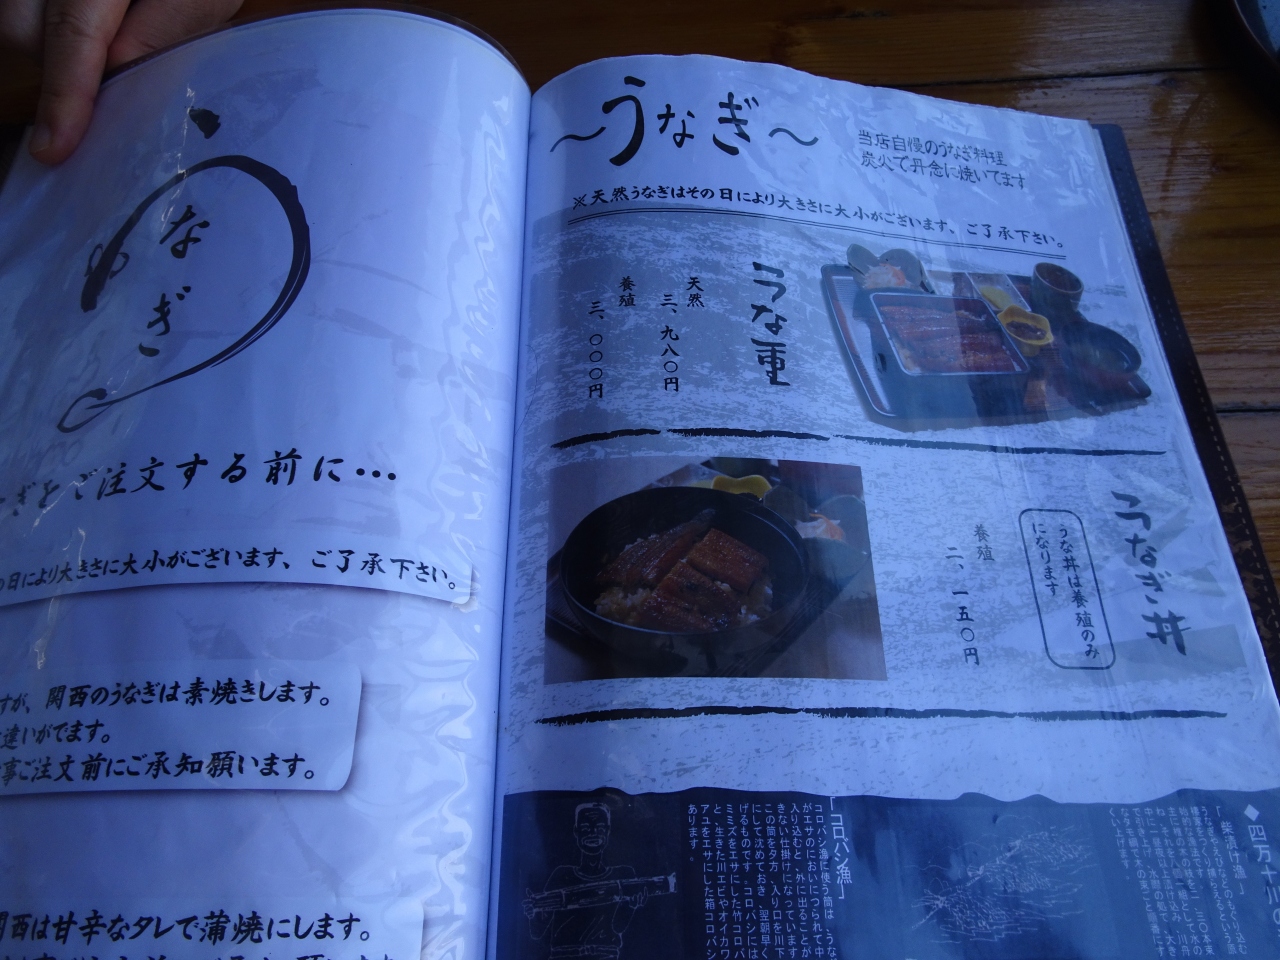 うなぎ
をご注文する前に…
日により大きさに大小がございます、ご了承下さい。
すが、関西のうなぎは素焼きします。
違いがでます。
事ご注文前にご承知願います。
関西は甘辛なタレで蒲焼にします。
〜うなぎ〜
当店自慢のうなぎ料理
炭火で丹念に焼いてます
※天然うなぎはその日により大きさに大小がございます、ご了承下さい。
うな重
天然
三、九八〇円
養殖
三、〇〇〇円
うなぎ丼
うな丼は養殖のみ
になります
養殖
二、一五〇円
◆四万十川の
「柴漬け漁」
「コロバシ漁」
コロバシ漁に使う筒は、うな
がエサのにおいにつられて中
入り込むと、外に出ることが
きない仕掛けになっています
この筒を夕方、入り口を川下
にして沈めておき、翌朝早く
げるものです。コロバシには
ミミズをエサにした竹コロバ
と、生きた川エビやオイカワ
アユをエサにした箱コロバシ
あります。